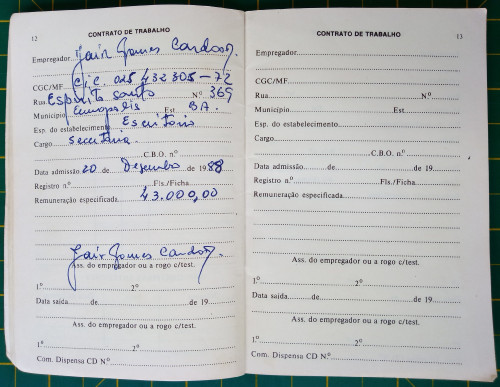 12
CONTRATO DE TRABALHO
Empregador Jair Gomes Cardoso
CGC/MF C.i.C. 025 432 305-72
Rua Espirito santo Nº 369
Município Eunapolis Est. BA.
Esp. do estabelecimento Escritório
Cargo Secretaria
C.B.O. nº
Data admissão 20 de Dezembro de 1988
Registro nº Fls./Ficha
Remuneração especificada 43.000,00
Jair Gomes Cardoso
Ass. do empregador ou a rogo c/test.
1º 2º
Data saída de de 19
Ass. do empregador ou a rogo c/test.
1º 2º
Com. Dispensa CD Nº
CONTRATO DE TRABALHO
13
Empregador
CGC/MF
Rua Nº
Município Est.
Esp. do estabelecimento
Cargo
C.B.O. nº
Data admissão de de 19
Registro nº Fls./Ficha
Remuneração especificada
Ass. do empregador ou a rogo c/test.
1º 2º
Data saída de de 19
Ass. do empregador ou a rogo c/test.
1º 2º
Com. Dispensa CD Nº